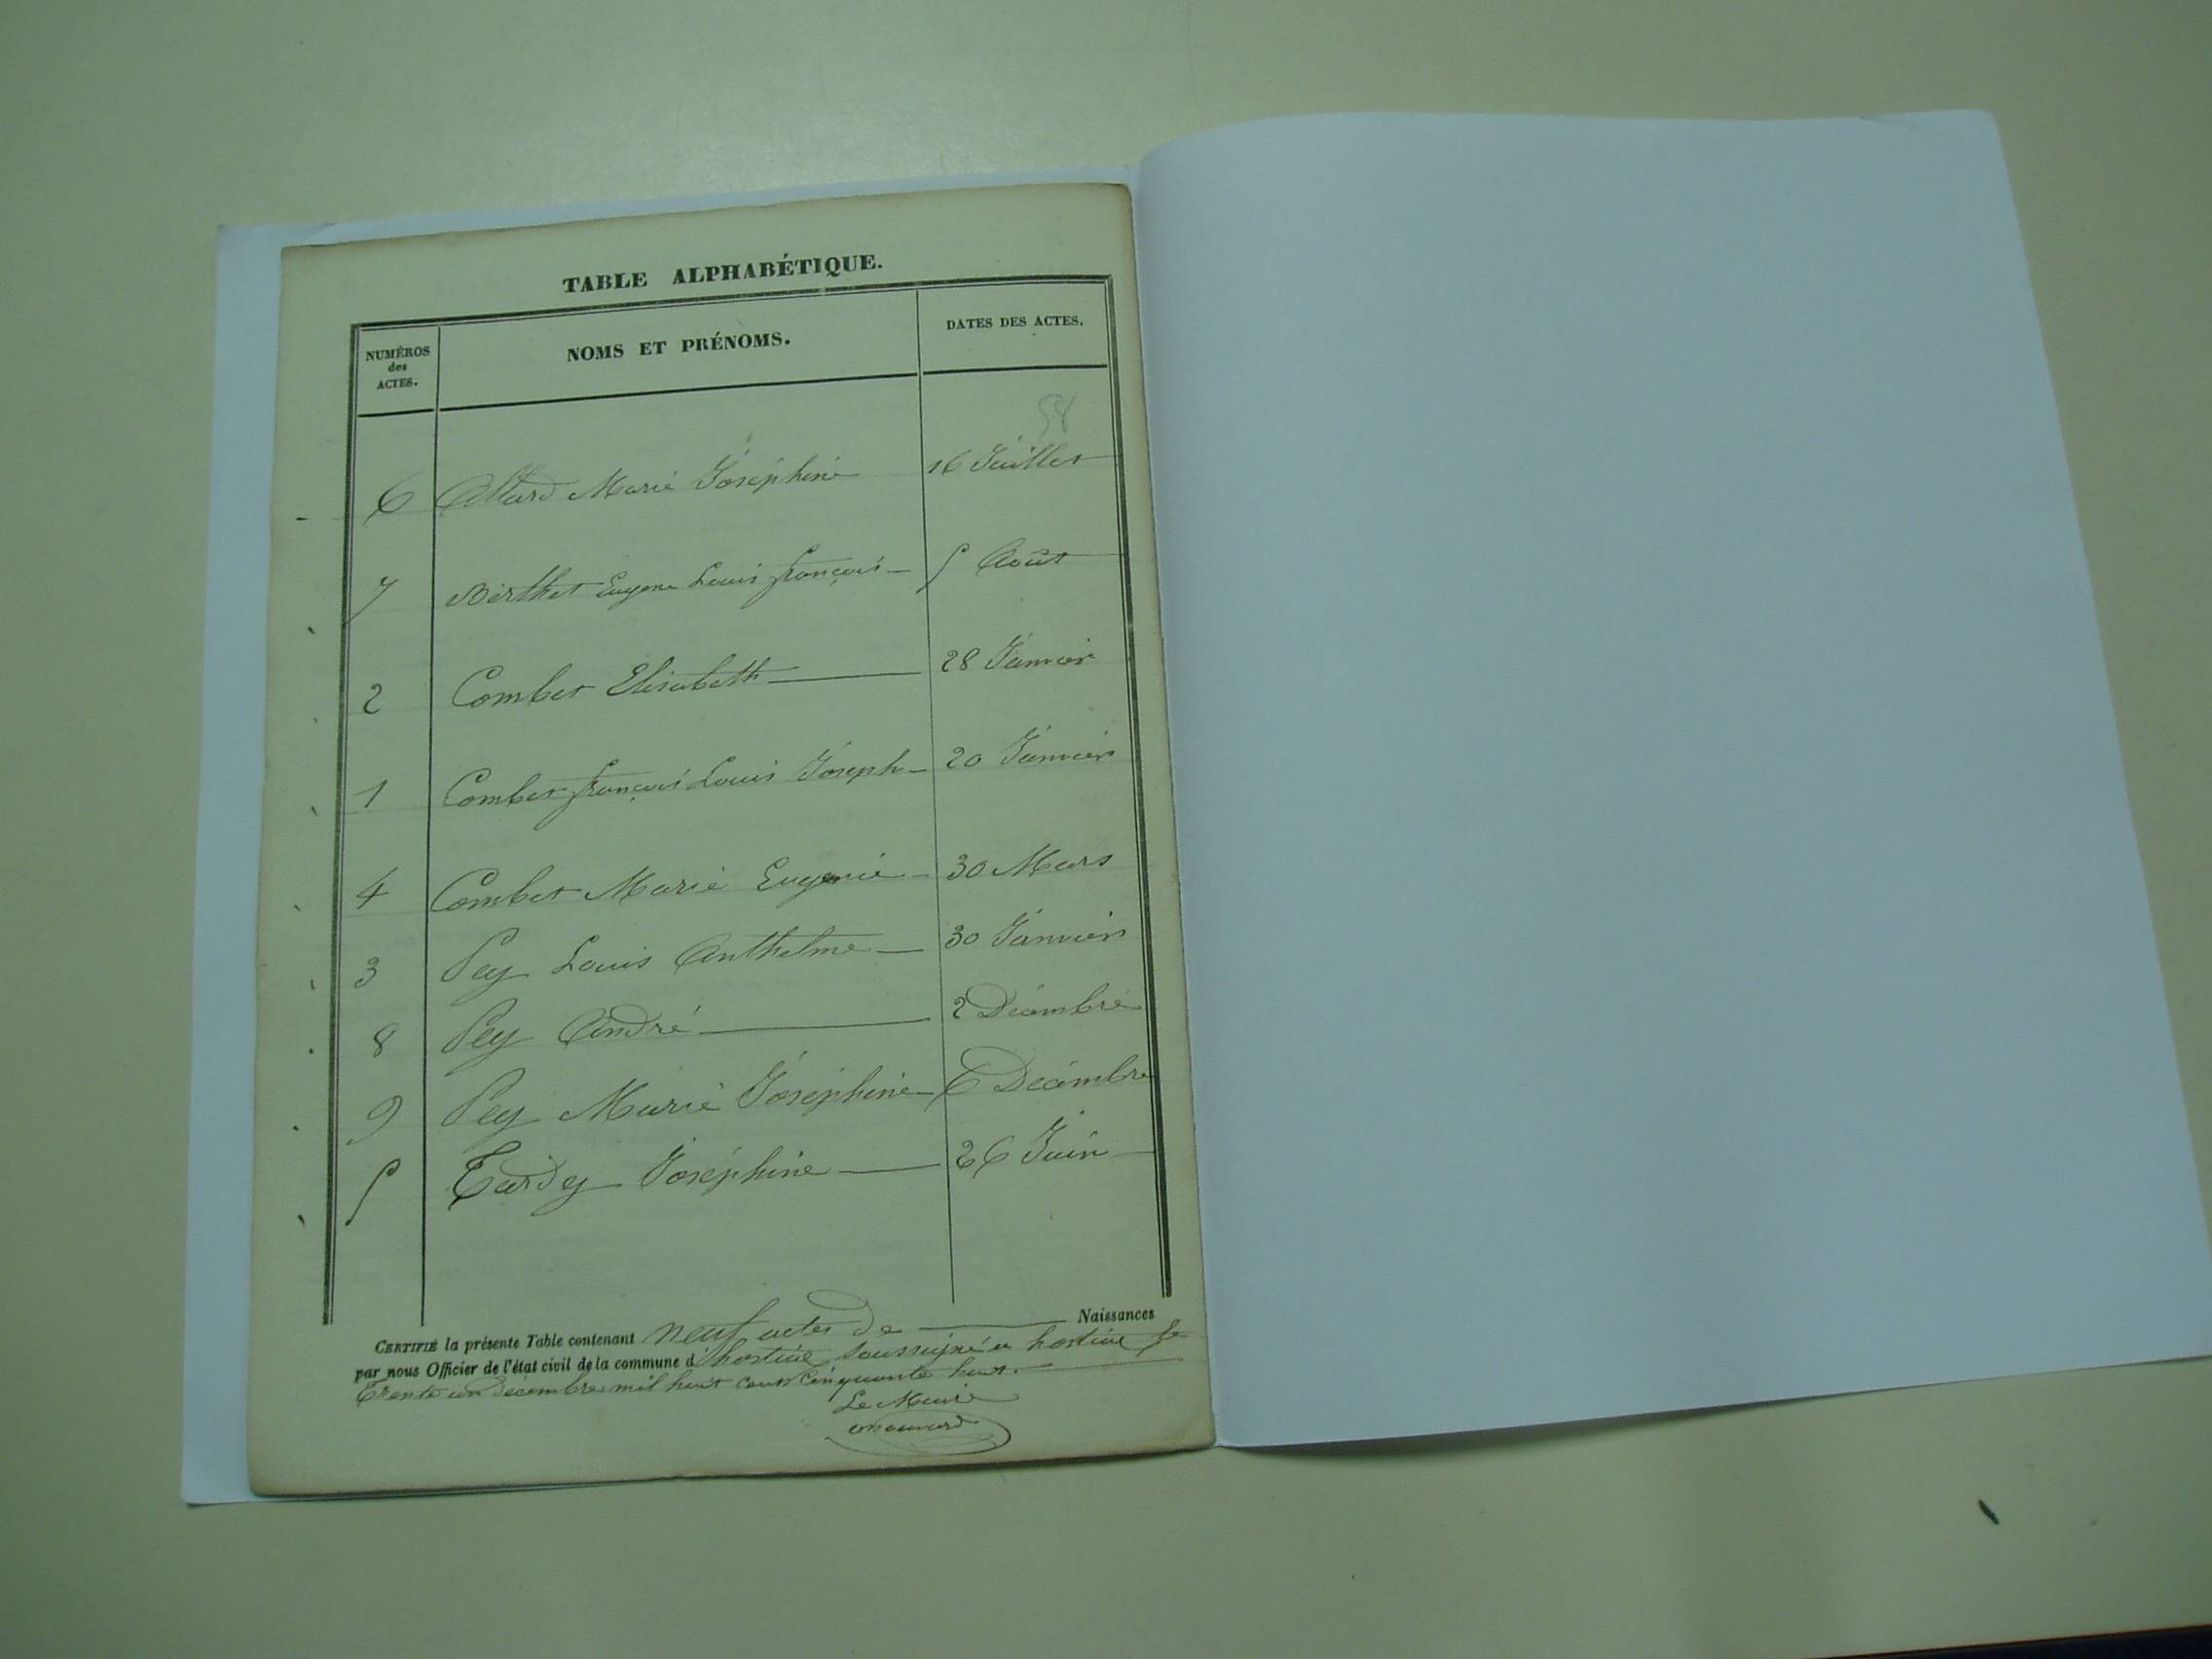 TABLE ALPHABÉTIQUE.
NUMÉROS des ACTES.
NOMS ET PRÉNOMS.
DATES DES ACTES.
58
6 Allard Marie Joséphine 16 Juillet
7 Berthet Eugene Louis françois 5 Août
2 Combet Elisabeth 28 Janvier
1 Combet françois Louis Joseph 20 Janvier
4 Combet Marie Eugenie 30 Mars
3 Pey Louis Anthelme 30 Janvier
8 Pey André 2 Décembre
9 Pey Marie Joséphine 6 Décembre
5 Tardy Joséphine 26 Juin
CERTIFIÉ la présente Table contenant neuf actes de Naissances
par nous Officier de l'état civil de la commune d'hostiaz soussigné a hostiaz le
Trente un Décembre mil huit cent cinquante huit.
Le Maire